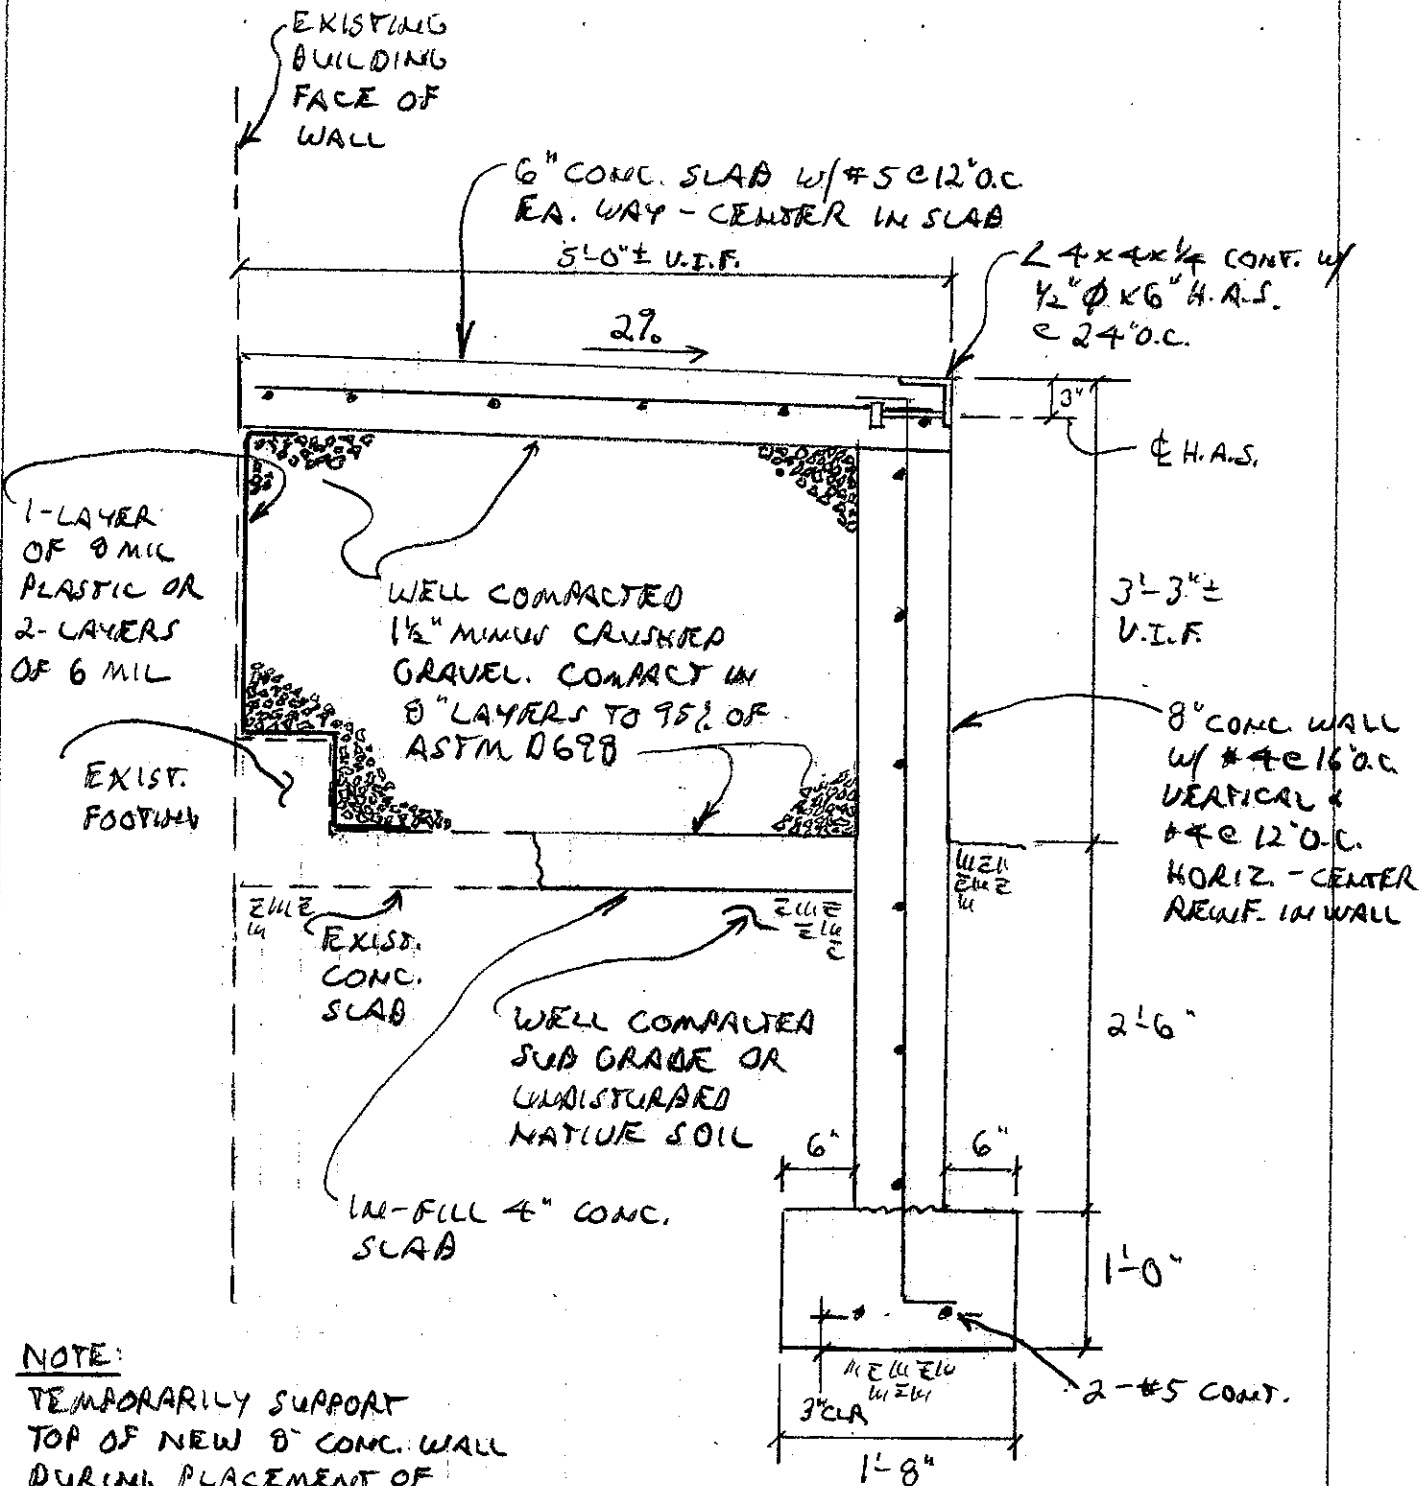 EXISTING
BUILDING
FACE OF
WALL
6" CONC. SLAB W/ #5 @ 12" O.C.
EA. WAY - CENTER IN SLAB
5'-0" ± V.I.F.
L 4 x 4 x 1/4 CONT. W/
1/2" Ø x 6" H.A.S.
@ 24" O.C.
2%
3"
℄ H.A.S.
1-LAYER
OF 8 MIL
PLASTIC OR
2-LAYERS
OF 6 MIL
WELL COMPACTED
1 1/2" MINUS CRUSHED
GRAVEL. COMPACT IN
8" LAYERS TO 95% OF
ASTM D698
3'-3" ±
V.I.F.
8" CONC. WALL
W/ #4 @ 16" O.C.
VERTICAL &
#4 @ 12" O.C.
HORIZ. - CENTER
REINF. IN WALL
EXIST.
FOOTING
EXIST.
CONC.
SLAB
WELL COMPACTED
SUB GRADE OR
UNDISTURBED
NATIVE SOIL
2'-6"
6"
6"
IN-FILL 4" CONC.
SLAB
1'-0"
2-#5 CONT.
3" CLR
1'-8"
NOTE:
TEMPORARILY SUPPORT
TOP OF NEW 8" CONC. WALL
DURING PLACEMENT OF